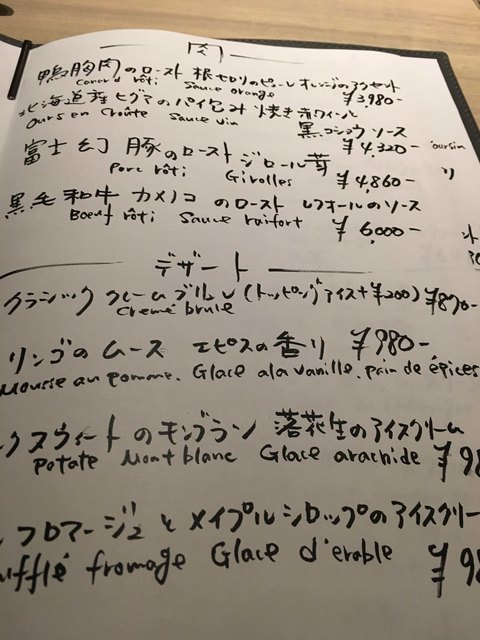 肉
鴨胸肉のロースト 根セロリのピューレ オレンジのアクセント
Canard rôti Sauce orange ¥3,980-
北海道産ヒグマのパイ包み焼き 赤ワインと
Ours en Croûte Sauce vin 黒コショウソース
¥4,320-
oursin
富士幻豚のロースト ジロール茸
Porc rôti Girolles ¥4,860-
黒毛和牛 カメノコ のロースト レフォールのソース
Boeuf rôti Sauce raifort ¥6,000-
デザート
クラシック クレームブリュレ (トッピングアイス+¥200) ¥870-
Creme brule
リンゴのムース エピスの香り ¥980-
Mousse au pomme. Glace a la vanille. pain de épices
クスウィートのモンブラン 落花生のアイスクリーム
Potate Mont blanc Glace arachide ¥98
フロマージュとメイプルシロップのアイスクリー
ufflé fromage Glace d'erable ¥98